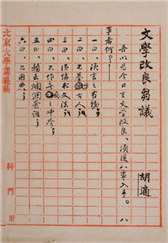 文學改良芻議
胡適
吾以為今日言文學改良，須從八事入手。八
事者何？
一曰，須言之有物。
二曰，不摹仿古人。
三曰，須講求文法。
四曰，不作無病之呻吟。
五曰，務去爛調套語。
六曰，不用典。
北京大學
科 門